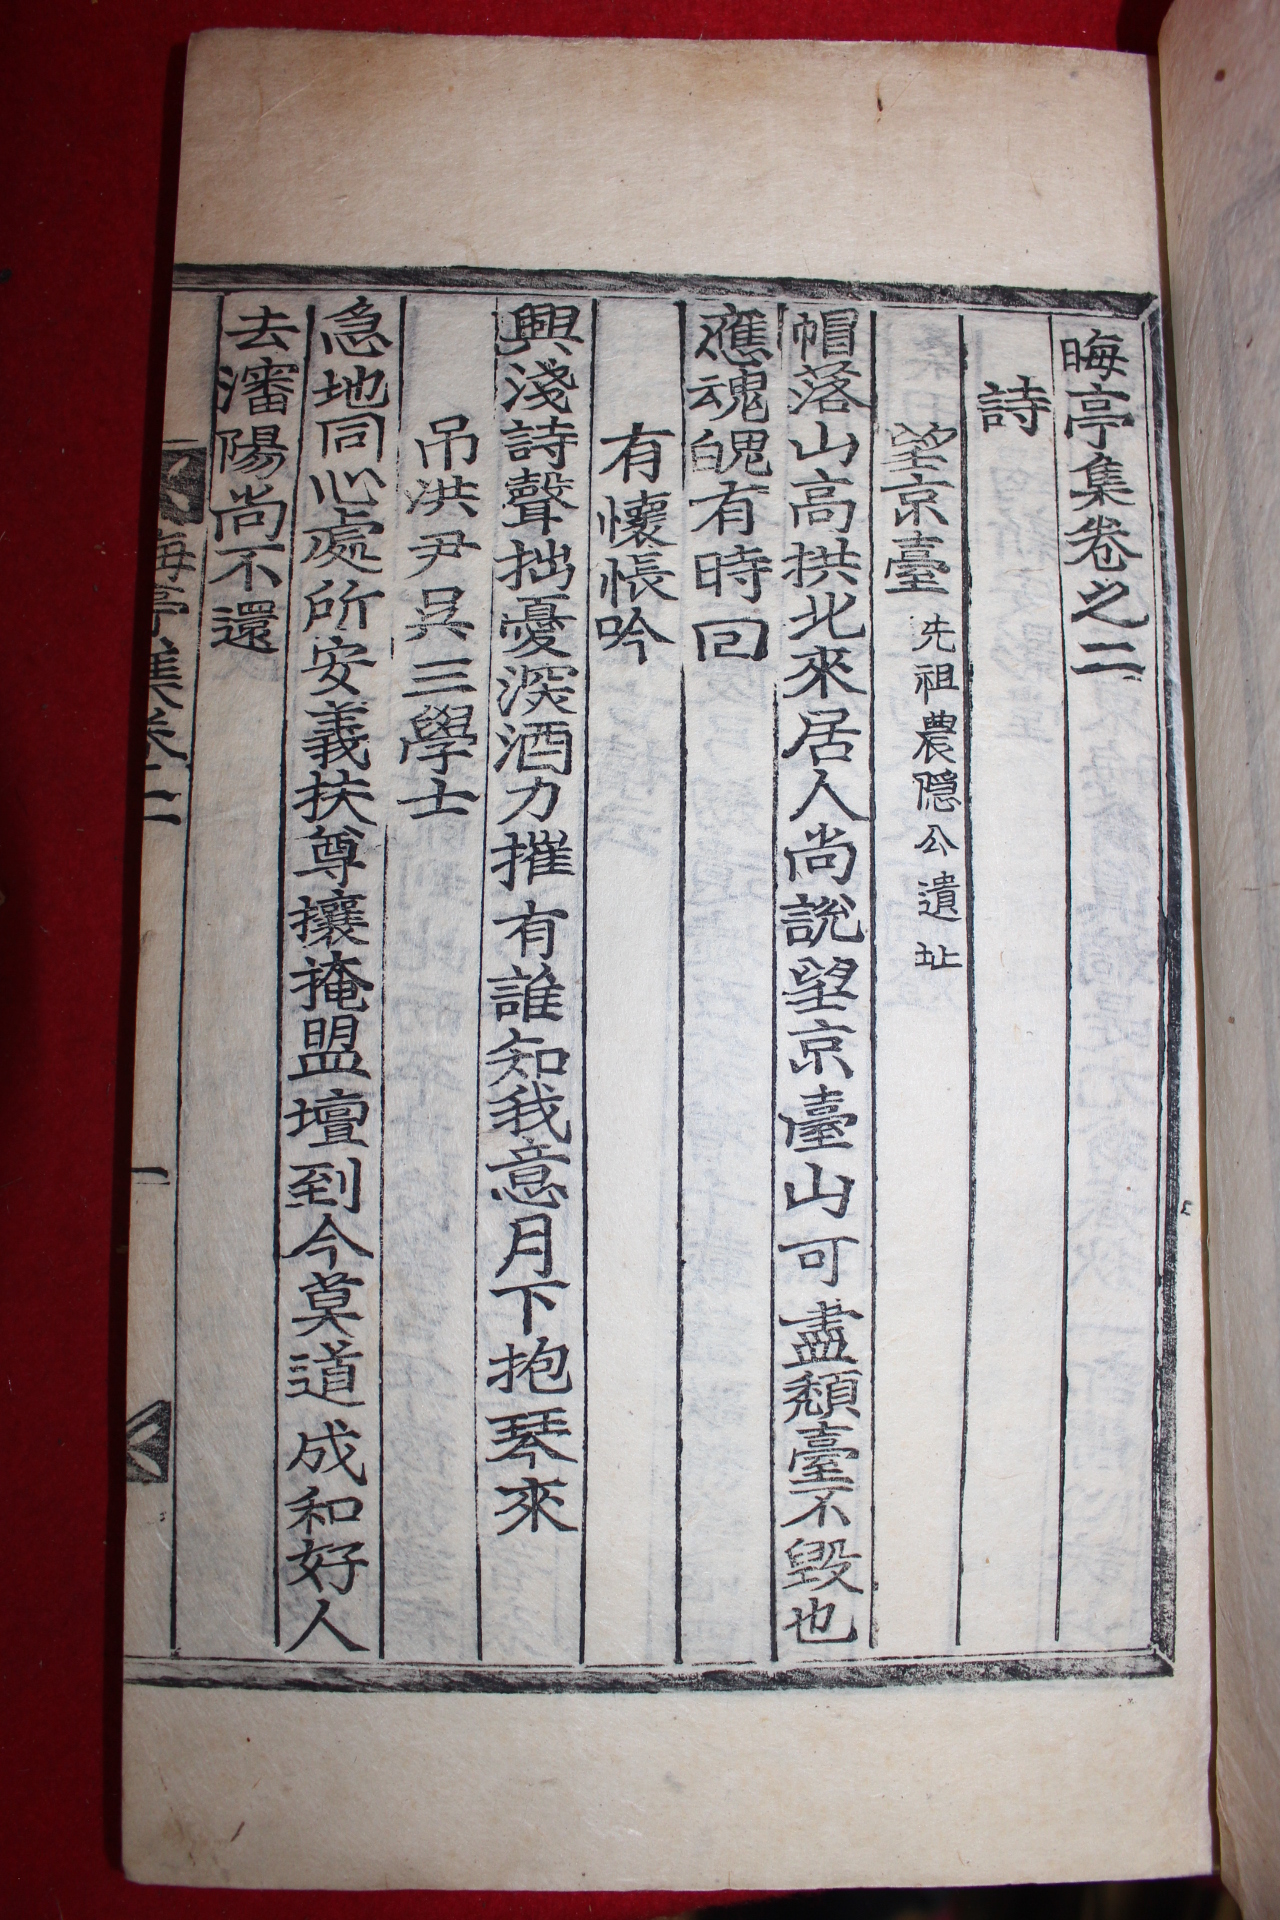 晦亭集卷之二
詩
望京臺 先祖農隱公遺址
帽落山高拱北來居人尙說望京臺山可盡頹臺不毁也
應魂魄有時回
有懷悵吟
興淺詩聲拙憂深酒力摧有誰知我意月下抱琴來
吊洪尹吳三學士
急地同心處所安義扶尊攘掩盟壇到今莫道成和好人
去瀋陽尙不還
晦亭集卷二
一